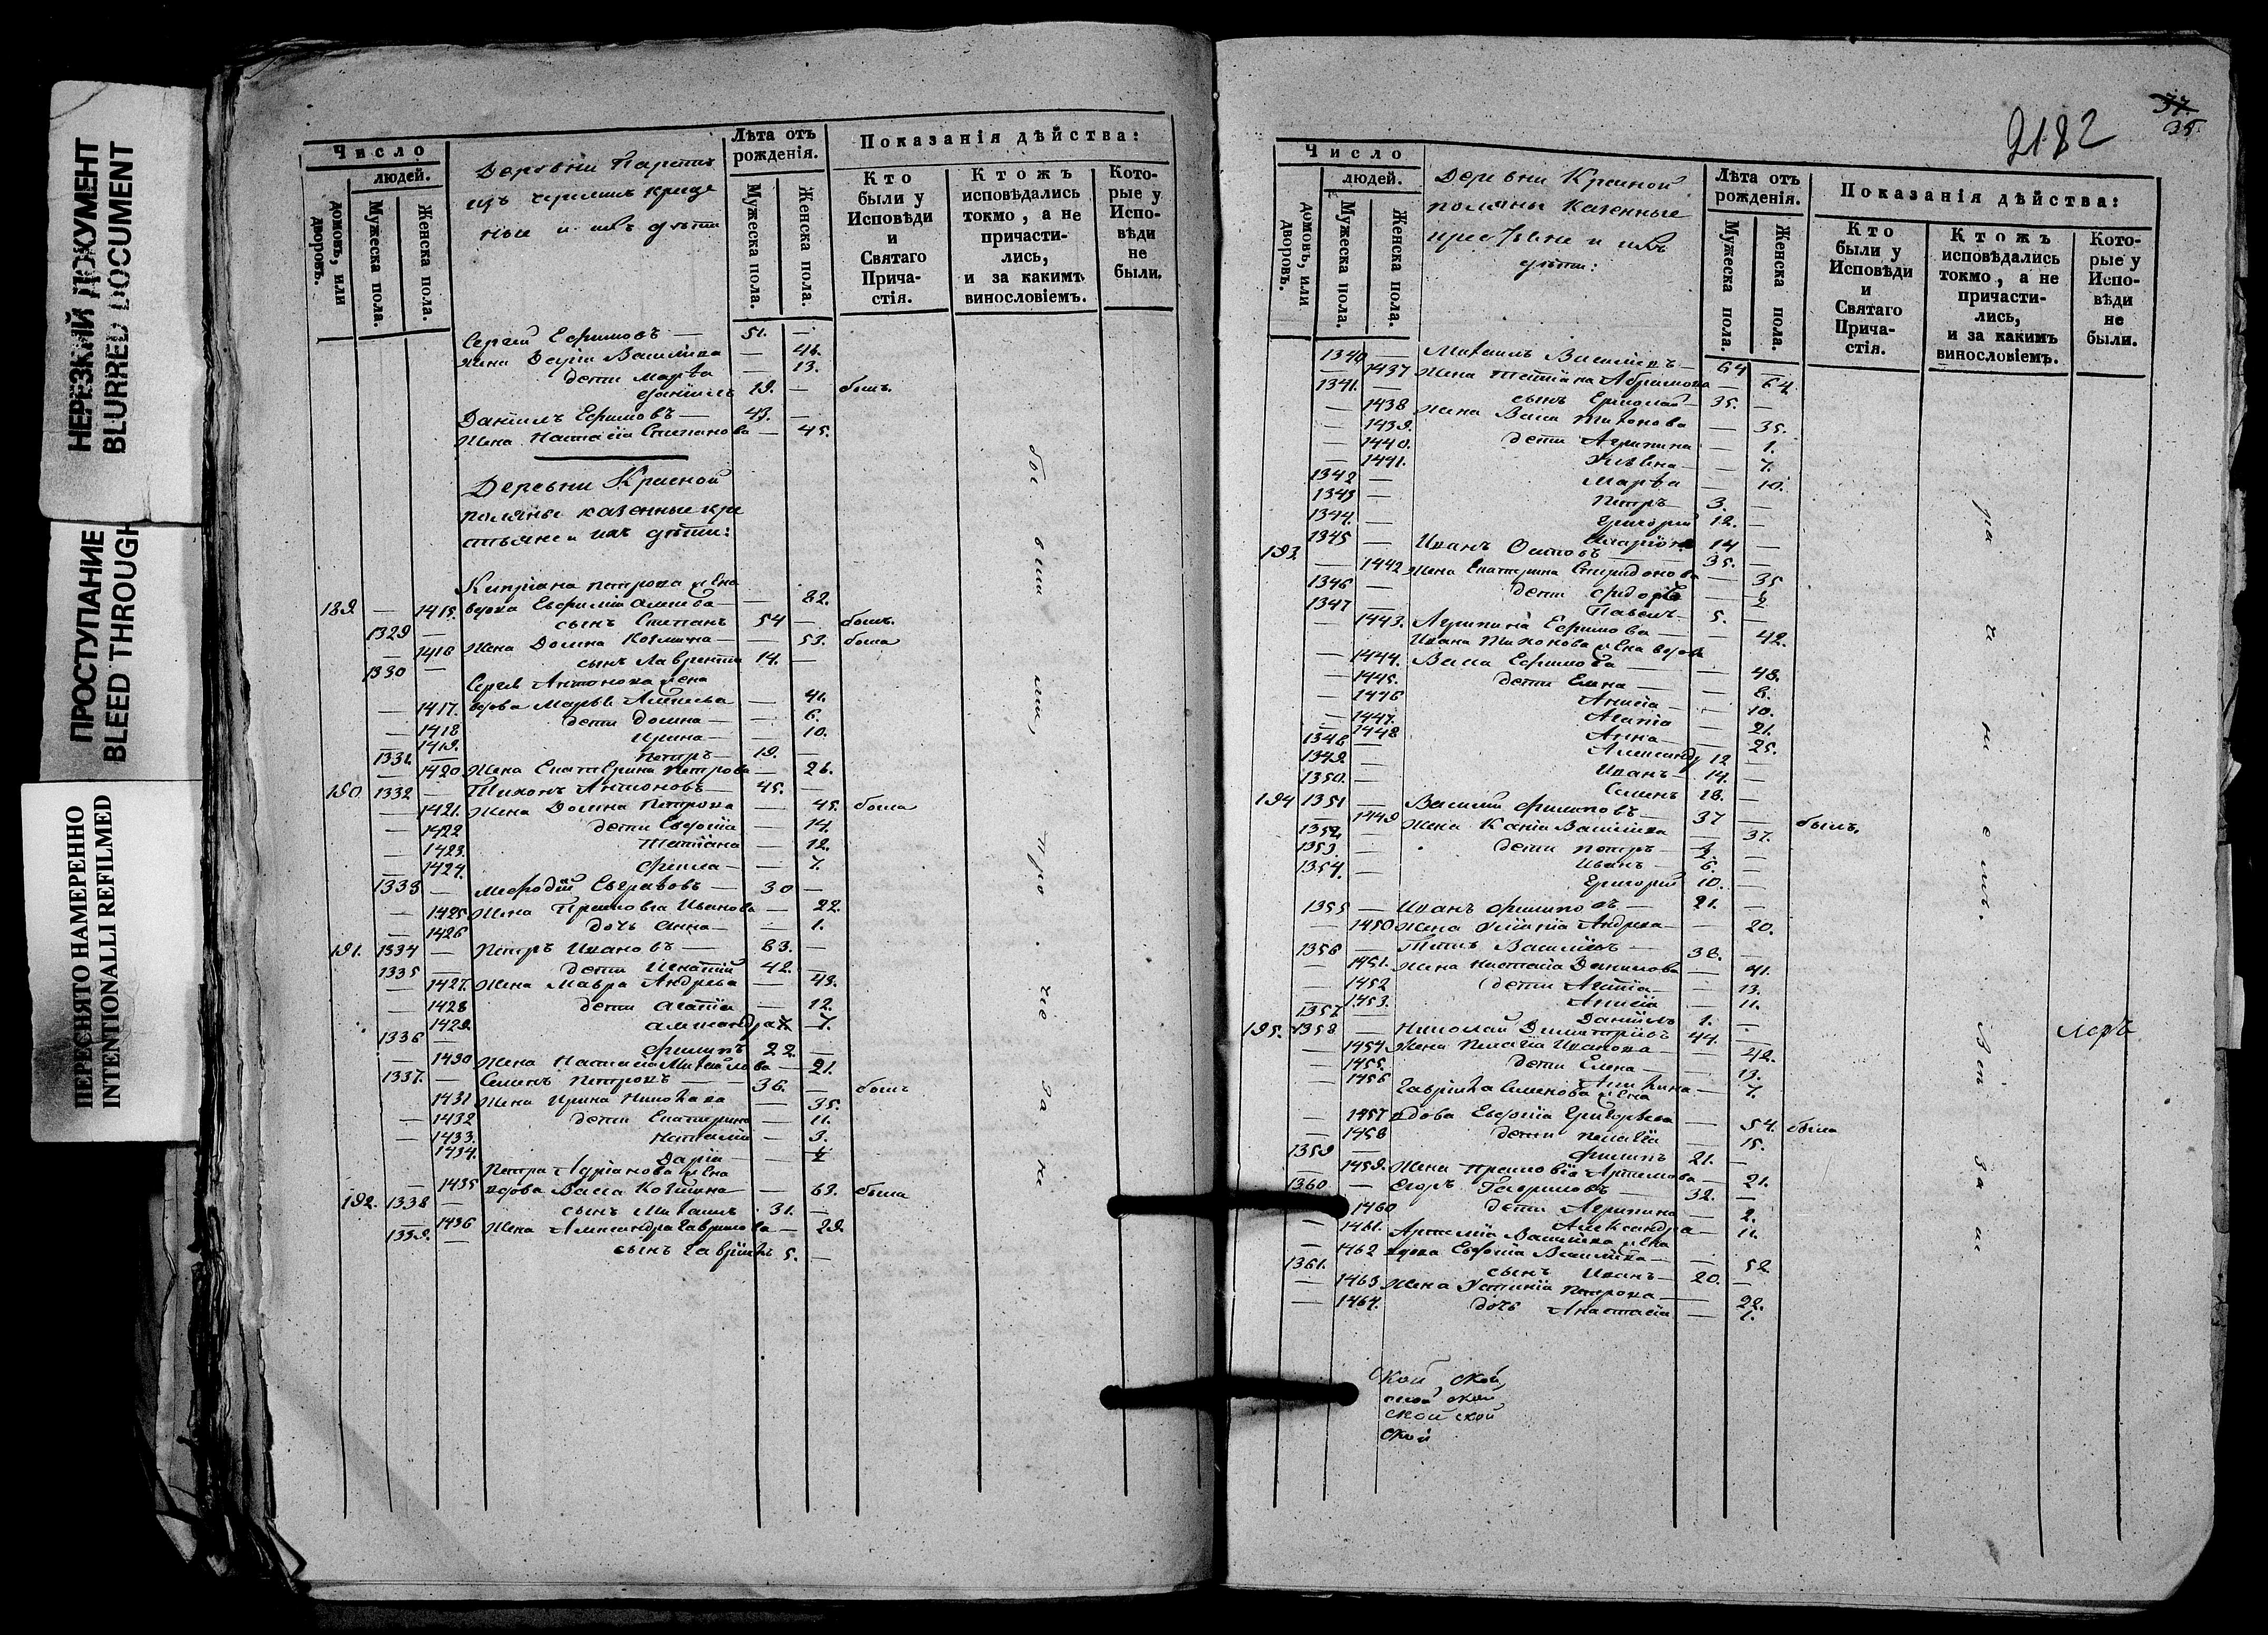 НЕРЕЗКИЙ ДОКУМЕНТ
BLURRED DOCUMENT
ПРОСТУПАНИЕ
BLEED THROUGH
ПЕРЕСНЯТО НАМЕРЕННО
INTENTIONALLI REFILMED
Число
людей.
домовъ, или дворовъ.
Мужеска пола.
Женска пола.
Деревни
и ихъ дѣти
Лѣта отъ рожденія.
Мужеска пола.
Женска пола.
Показанія дѣйства:
Кто были у Исповѣди и Святаго Прича-стія.
Ктожъ исповѣдались токмо, а не причасти-лись, и за какимъ винословіемъ.
Кото-рые у Испо-вѣди не были.
Сергій Ефимовъ — 51. —
жена Дарія Василіева — 46.
дети Марѳа — 13.
Даніилъ 19. — былъ.
Даніилъ Ефимовъ — 43. —
Жена Наталія Степанова — 45.
Деревни Красной
поляны казенные кре
стьяне и ихъ дѣти:
Кипріана Петрова жена
189. — 1415. вдова Евфимія — 82.
1329 — сынъ Степанъ 54 — былъ.
— 1416 Жена Домна Козмина — 53. была
1330 — сынъ Лаврентій 14. —
Сергѣя Антонова жена
— 1417. вдова Марѳа — 41.
— 1418 дети Домна — 6.
— 1419. Ирина — 10.
1331. — Петръ — 19. —
— 1420 Жена Екатерина Петрова — 26.
190. 1332 — Тихонъ Антоновъ — 45. —
— 1421. Жена Домна Петрова — 45. была
— 1422 дети Евфимія — 14.
— 1423. Татіана — 12.
— 1424. — 7.
1333 — Меѳодій Евграфовъ — 30 —
— 1425 Жена Прасковья Иванова — 22.
— 1426 дочь Анна — 1.
191. 1334 — Петръ Ивановъ — 63. —
1335 — дети Игнатій 42. —
— 1427. Жена Мавра Андреева — 43.
— 1428 дети Агаѳія — 12.
1429. Александра — 7.
1336 — Филипъ 22. —
— 1430 Жена Наталія Михайлова — 21.
1337. — Семенъ Петровъ — 36. — былъ
1431 Жена Ирина Николаева — 35.
— 1432 дети Екатерина — 11.
— 1433. Наталія — 3.
1434. Дарія —
Петра Адріанова жена
— 1435 вдова Васса Козмина — 63. была
192. 1338 — сынъ Михаилъ 31. —
— 1436 Жена Александра Гаврилова — 29.
1339. — сынъ Гавріилъ 5. —
бы вши ми, про чіе за н
9182
37.
35.
Число
людей.
домовъ, или дворовъ.
Мужеска пола.
Женска пола.
Деревни Красной
поляны казенные
крестьяне и ихъ
дѣти:
Лѣта отъ рожденія.
Мужеска пола.
Женска пола.
Показанія дѣйства:
Кто были у Исповѣди и Святаго Прича-стія.
Ктожъ исповѣдались токмо, а не причасти-лись, и за какимъ винословіемъ.
Кото-рые у Испо-вѣди не были.
1340 — Михаилъ Василіевъ — 64 —
— 1437 Жена Татіана Абрамова — 64.
1341. — сынъ Ермолай — 35. —
— 1438 жена Васса Тихонова — 35.
— 1439. дети Агрипина — 1.
— 1440. — 7.
— 1441. Марѳа — 10.
1342 — Петръ — 3. —
1343 — Григорій 12. —
1344. — Иларіонъ 14 —
193. 1345 — Иванъ Осиповъ — 35. —
— 1442 Жена Екатерина Спиридонова — 35
1346 — дети
1347 — Павелъ — 5. —
— 1443. Агрипина Ефимова — 42.
Ивана Тихонова жена вдова
— 1444. Васса Ефимова — 48.
— 1445. дети Елена — 8.
— 1446 Анисія — 10.
— 1447. Агаѳія — 21.
— 1448 Анна — 25.
1348 — Александръ 12 —
1349. — Иванъ — 14. —
1350. — Семенъ 18. —
194 1351 — Василій Филиповъ — 37 — былъ.
— 1449 Жена Василіева — 37.
1352. — дети Петръ —
1353. — Иванъ — 6. —
1354. — Григорій 10. —
1355 — Иванъ Филиповъ — 21. —
— 1450 Жена Андреева — 20.
1356 — Титъ Василіевъ — 38. —
— 1451. Жена Настасія Данилова — 41.
— 1452 дети Агаѳія — 13.
— 1453. Анисія — 11.
1357 — Даніилъ 1. —
195. 1358 — Николай Димитріевъ 44. —
— 1454 Жена Пелагія Иванова — 42.
— 1455. дети Елена — 13.
— 1456 — 7.
Гавріила Семенова жена
— 1457 вдова Евфимія Григорьева — 54. была
— 1458 дети Пелагія — 15.
1359 — Филипъ 21. —
— 1459. Жена Прасковія Артемова — 21.
1360 — Егоръ Гавриловъ — 32. —
— 1460 дети Агрипина — 2.
— 1461. Александра — 11.
Артемія Василіева жена
— 1462 вдова Евфимія Василіева — 52
1361. — сынъ Иванъ — 20. —
— 1463 Жена Устинія Петрова — 22.
— 1464. дочь Анастасія — 1.
ра чи н е мъ. Веп за и
лѣръ
ской ской
ской ской
ской ской
ской